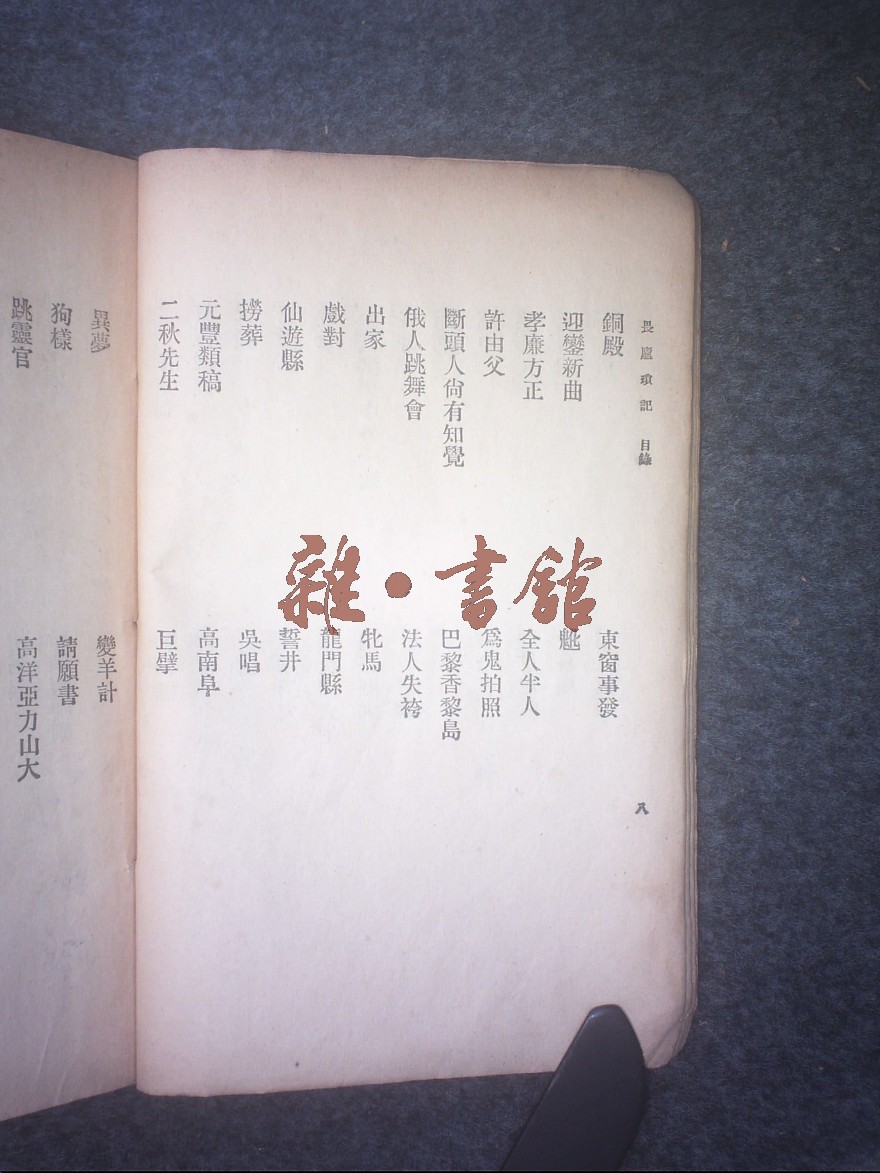 畏廬瑣記 目錄
八
銅殿
東窗事發
迎鑾新曲
魆
孝廉方正
全人半人
許由父
爲鬼拍照
斷頭人尙有知覺
巴黎香黎島
俄人跳舞會
法人失袴
出家
牝馬
戲對
龍門縣
仙遊縣
誓井
撈葬
吳唱
元豐類稿
高南阜
二秋先生
巨擘
異夢
變羊計
狗樣
請願書
跳靈官
高洋亞力山大
雜·書館